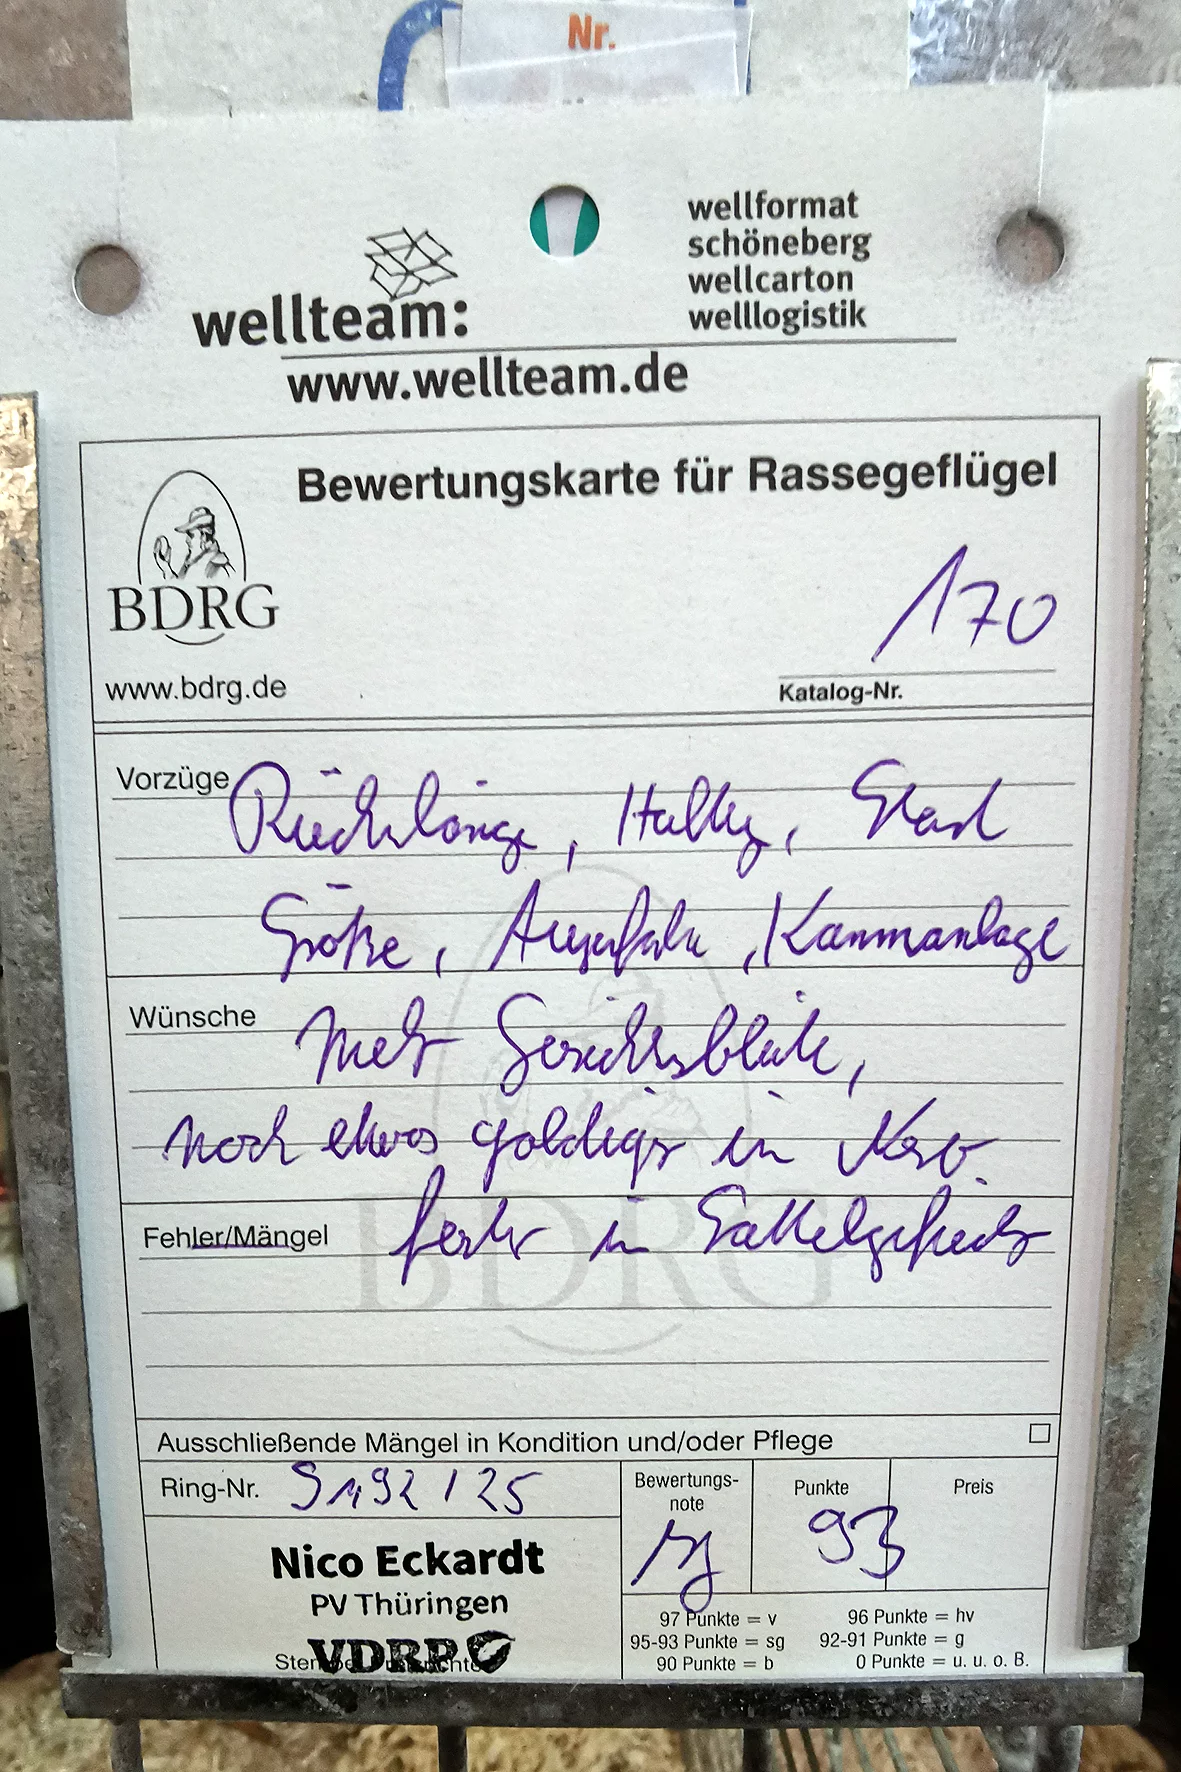 Nr.
wellteam:
www.wellteam.de
wellformat
schöneberg
wellcarton
welllogistik
Bewertungskarte für Rassegeflügel
BDRG
www.bdrg.de
170
Katalog-Nr.
Vorzüge Rückenlänge, Stand
Größe, Augenfarbe, Kammanlage
Wünsche Mehr Gesichtsblüte,
noch etwas goldiger in
Fehler/Mängel in Sattelgefieder
BDRG
Ausschließende Mängel in Kondition und/oder Pflege
Ring-Nr. S192 / 25
Bewertungs-
note
sg
Punkte
93
Preis
Nico Eckardt
PV Thüringen
VDRP
97 Punkte = v 96 Punkte = hv
95-93 Punkte = sg 92-91 Punkte = g
90 Punkte = b 0 Punkte = u. u. o. B.